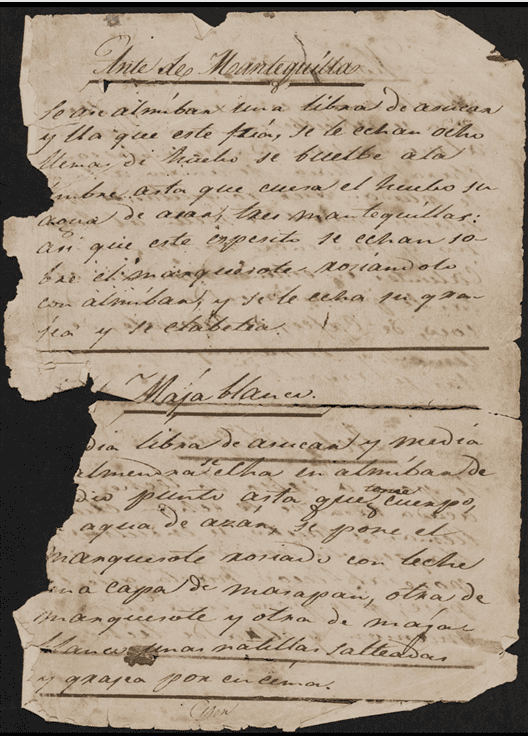 Ante de Mantequilla
se ase almibar una libra de asucar
y lla que este fria, se le echan ocho
llemas de huebo se buelbe a la
umbre asta que cuesa el huebo su
agua de asar, tres mantequillas:
asi que este espesito se echan so-
bre el manquesote rosiandolo
con almibar, y se le echa su gra-
jea y se
Maja blanca.
dia libra de asucar y media
almendra se echa en almibar de
dio punto asta que tome cuerpo,
agua de azar, se pone el
manquesote rosiado con leche
una capa de masapan, otra de
manquesote y otra de majar
blanco unas natillas salteadas
y grajea por encima.